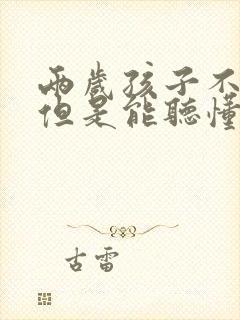 两歲孩子不
但是能聽懂
古雷